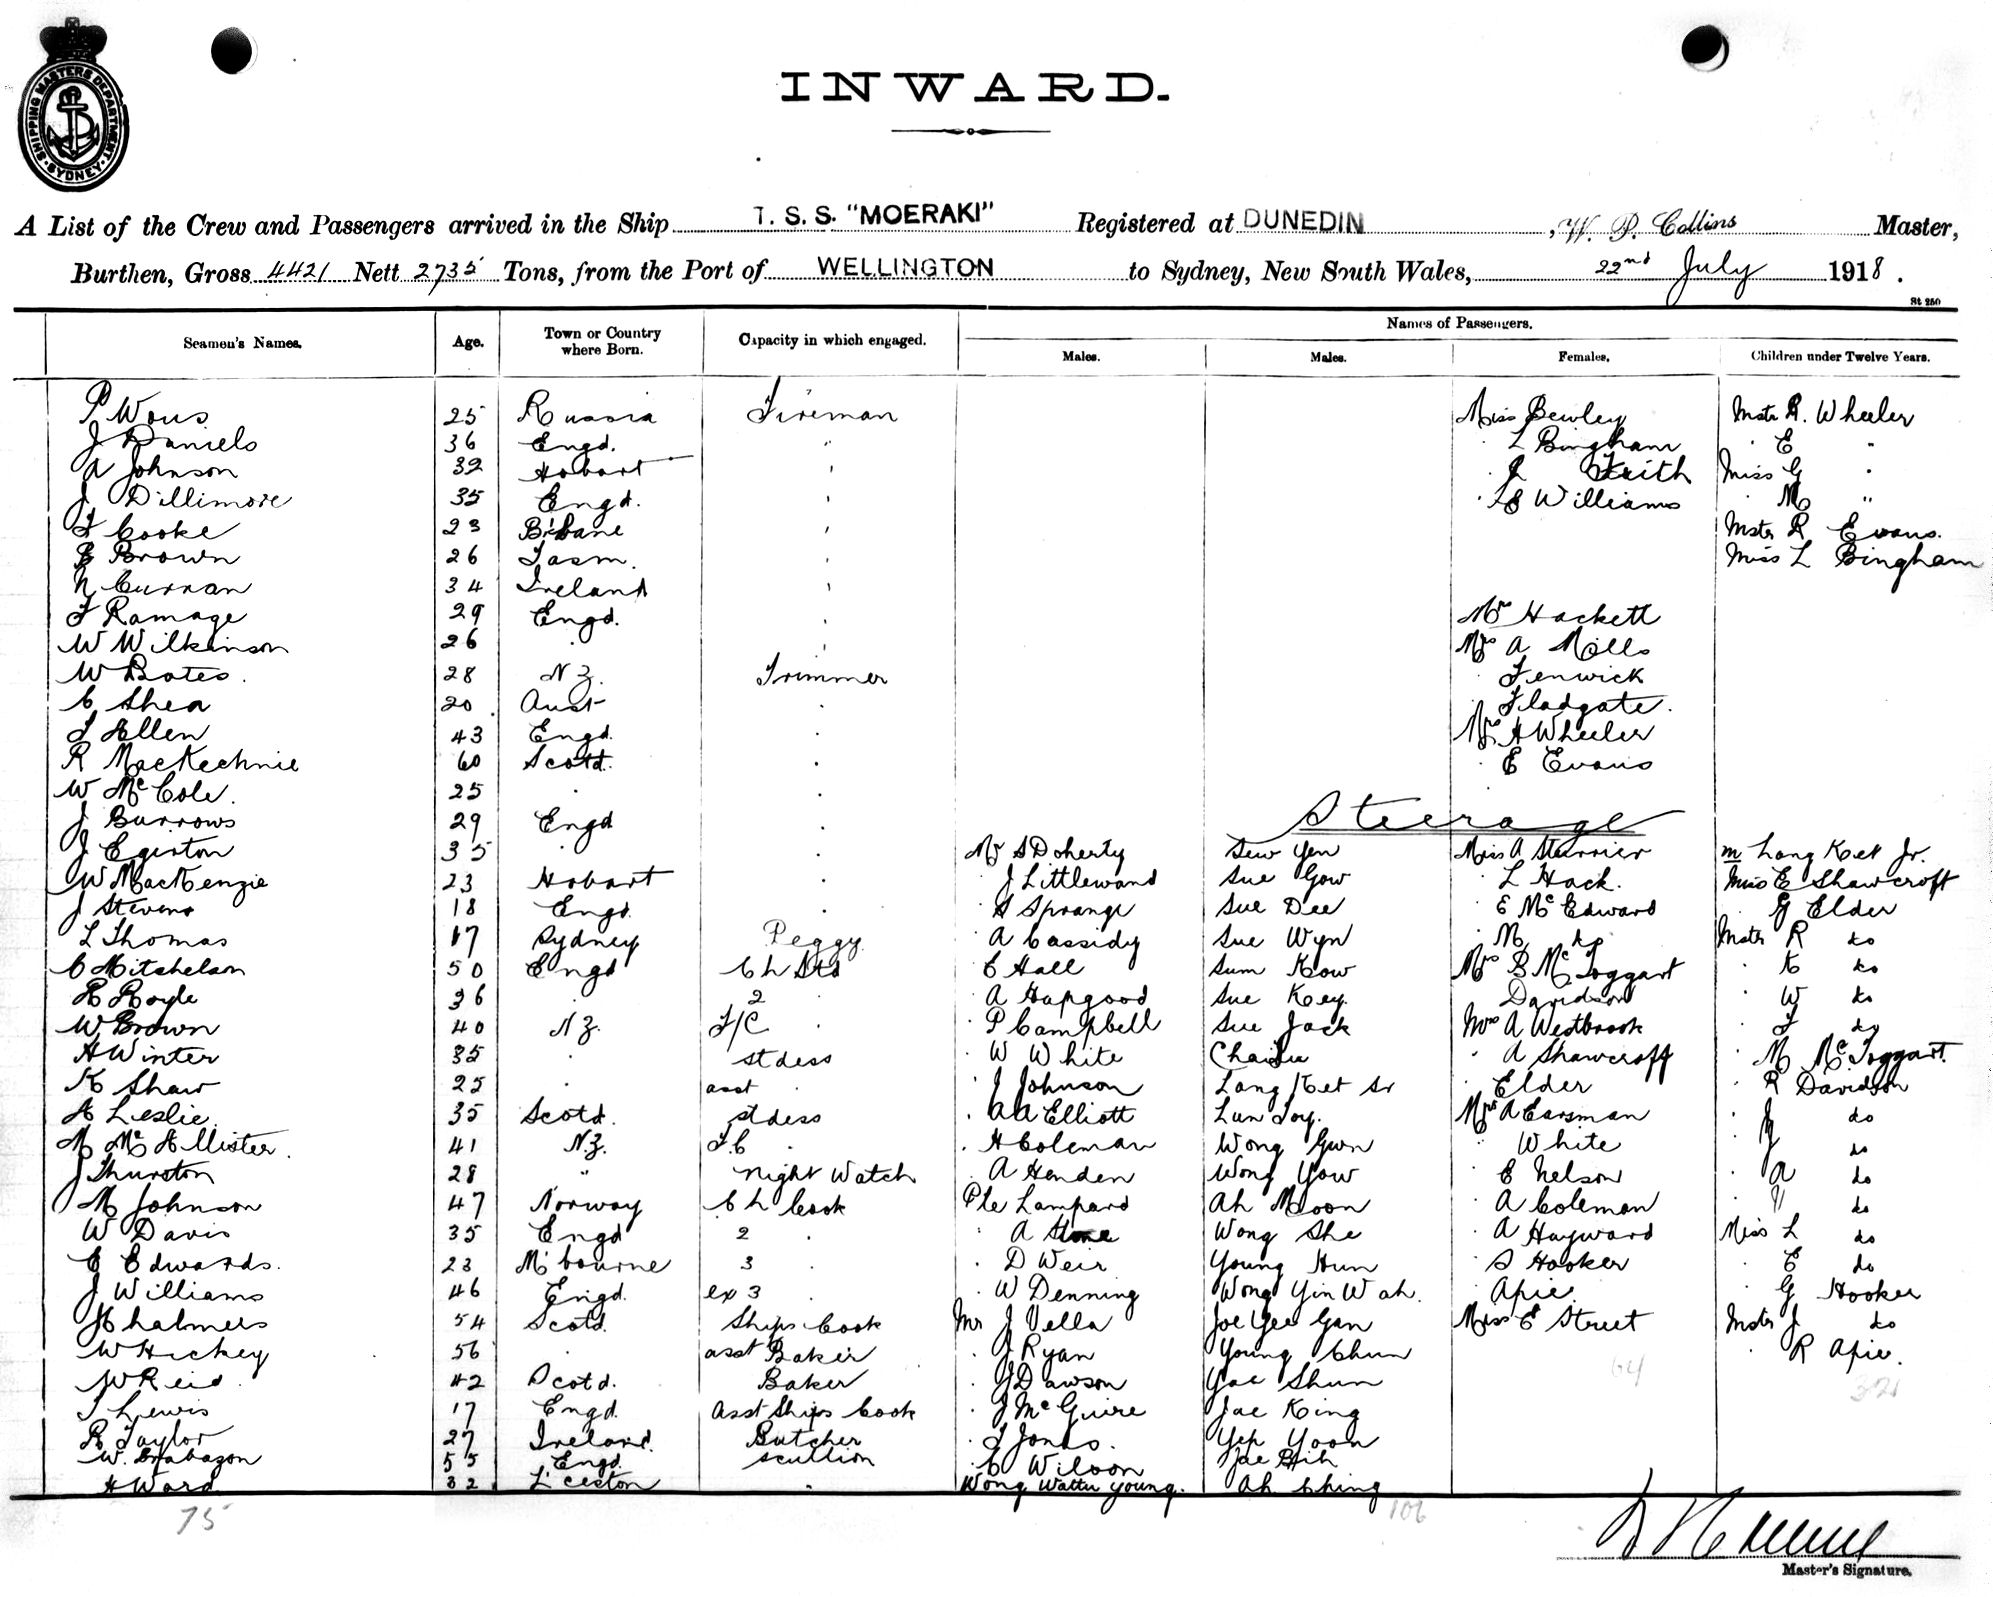 SHIPPING MASTERS DEPARTMENT · SYDNEY ·
INWARD.
A List of the Crew and Passengers arrived in the Ship T. S. S. "MOERAKI" Registered at DUNEDIN, W. P. Collins Master,
Burthen, Gross 4421 Nett 2735 Tons, from the Port of WELLINGTON to Sydney, New South Wales, 22nd July 1918.
St 250
Seamen's Names. Age. Town or Country where Born. Capacity in which engaged. Names of Passengers.
Males. Males. Females. Children under Twelve Years.
P Wous 25 Russia Fireman Miss Bewley Mstr R. Wheeler
J Daniels 36 Engd. " L Bingham " E "
A Johnson 32 Hobart " Miss G "
J Dillimore 35 Engd. " Williams " M "
F Cooke 23 B'bane " Mstr R Evans.
B Brown 26 Tasm. " Miss L Bingham
N Curran 34 Ireland "
F Ramage 29 Engd. " Hackett
W Wilkinson 26 " " Mrs A Mills
W Bates. 28 N.Z. Trimmer " Fenwick
C Shea 20 Aust " " Fladgate.
F Allen 43 Engd. " Mrs H Wheeler
R MacKechnie 60 Scotd. " " E Evans
W McCole. 25 " "
J Burrows 29 Engd "
Steerage
J Egerton 35 " " Mr S Doherty Sew Yen Miss A Sterrier m Lang Ket Jr.
W MacKenzie 23 Hobart " " J Littlewand Sue Gow " L Hack. Miss E Shawcroft
J Stevens 18 Engd. " " S Sprange Sue Dee " E McEdward " G Elder
L Thomas 17 Sydney Peggy. " A Cassidy Sue Wyn " M do Mstr R do
C Mitchelson 50 Engd Ch Std " C Hall Sum Kow Mrs B McTaggart " K do
R Royle 36 " 2 " " A Hapgood Sue Key. " Davidson " W do
W Brown 40 N.Z. F/C " " P Campbell Sue Jack Mrs A Westbrook " F do
H Winter 35 " stdess " W White " A Shawcroft " M McTaggart.
K Shaw 25 " asst " " J Johnson Lang Ket Sr " Elder " R Davidson
A Leslie. 35 Scotd. stdess " AA Elliott Lun Joy. Mrs A Earsman " J do
M McAllister. 41 N.Z. F.C " " H Coleman Wong Gwn " White " do
J Thurston 28 " Night Watch " A Henden Wong Yow " E Nelson " A do
M Johnson 47 Norway Ch Cook Pte Lampard Ah Moon " A Coleman " do
W Davis 35 Engd 2 " " A Wong She " A Hayward Miss L do
E Edwards. 23 M'bourne 3 " " D Weir Young Hun " S Hooker " E do
J Williams 46 Engd. ex 3 " " W Denning Wong Yin Wah. " Apie. " G Hooker
Chalmers 54 Scotd. Ships Cook Mr J Vella Joe Yee Gan Miss E Street Mstr J do
W Hickey 56 " asst Baker " J Ryan Young Chun " R Apie.
W Reid. 42 Scotd. Baker " J Dawson Yae Shun 64 32
T Lewis 17 Engd. Asst Ships Cook " J McGuire Jae King
R Taylor 27 Ireland. Butcher " T Jones. Yep Yoon
W. Brabazon 55 Engd. Scullion " C Wilson
H Ward 32 L'ceston " Wong Wattu Young. Ah Ching
75 106
Master's Signature.